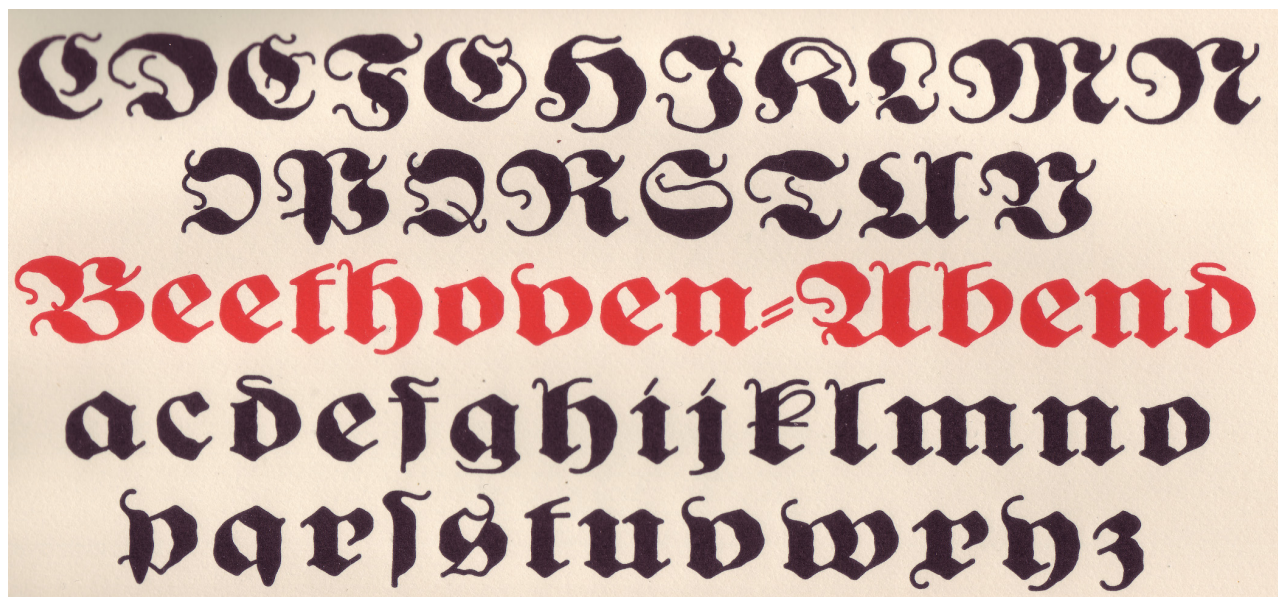 CDEFGHJKLMN
OPQRSTUV
Beethoven-Abend
acdefghijklmno
pqrſstuvwxyz